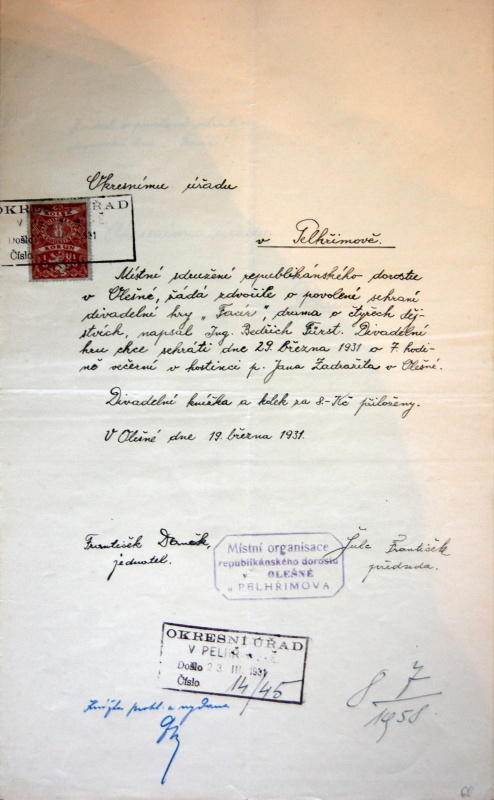 Okresnímu úřadu
OKRESNÍ ÚŘAD
V
Došlo 1931
Číslo
KOLEK
8
KORUN
v Pelhřimově.
Místní sdružení republikánského dorostu
v Olešné, žádá zdvořile o povolené sehraní
divadelné hry „Facír", drama o čtyřech děj-
stvích, napsal Ing. Bedřich Fürst. Divadelní
hru chce sehráti dne 29. března 1931 o 7. hodi-
ně večerní v hostinci p. Jana Zadražila v Olešné.
Divadelní knížka a kolek za 8.- Kč přiloženy.
V Olešné dne 19. března 1931.
František
jednatel.
Místní organisace
republikánského dorostu
v OLEŠNÉ
u PELHŘIMOVA
Šulc František
předseda.
OKRESNÍ ÚŘAD
V PELHŘIMOVĚ
Došlo 23 III. 1931
Číslo 14/45
8 7
1958
Knížka a vydána
60